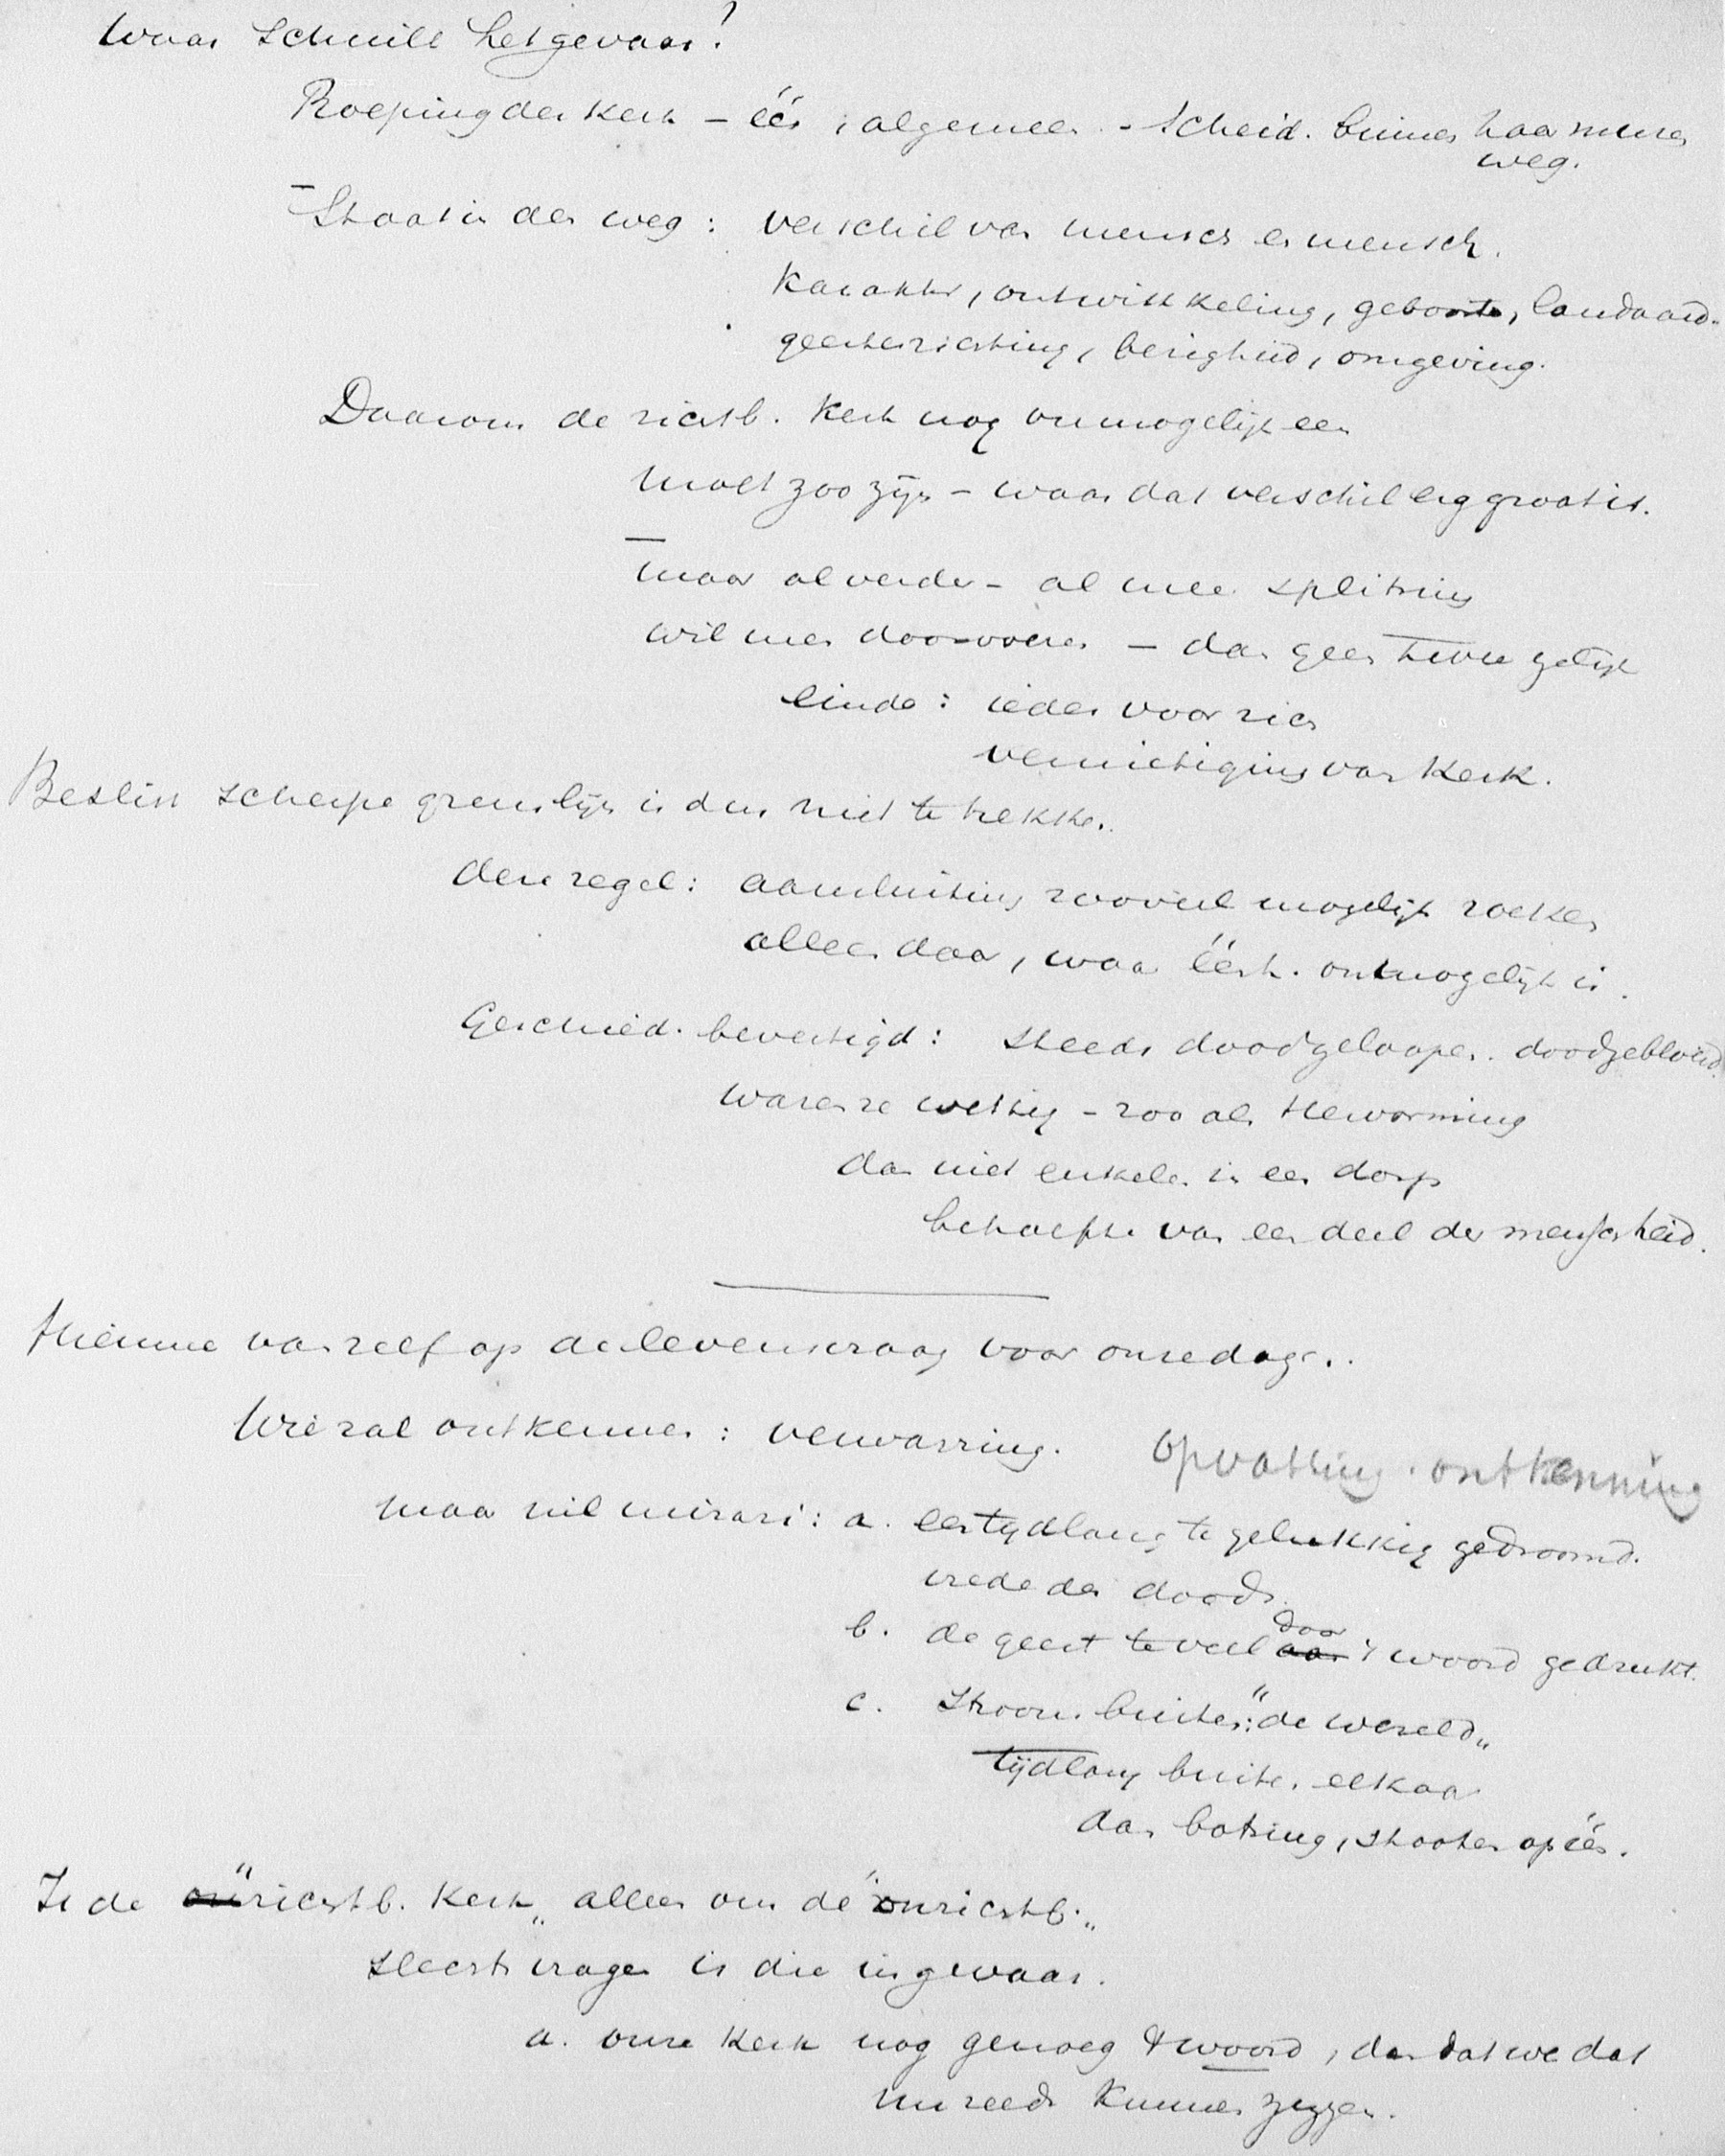 Waar schuilt het gevaar?
Roeping der kerk - één, algemeen. - Scheid. binnen haar muren
weg.
Staat in den weg: verschil van mensch en mensch.
Karakter, ontwikkeling, geboorte, landaard.
geestesrichting, bezigheid, omgeving.
Daarom de zichtb. Kerk nog onmogelijk een
moet zoo zijn - waar dat verschil erg groot is.
maar al verder - al meer splitsing
wil men doorvoeren - dan geen twee gelijk
einde: ieder voor zich
vernietiging van Kerk.
Beslist scherpe grenslijn is dus niet te trekken.
deze regel: aansluiting zooveel mogelijk zoeken
alleen daar, waar éénh. onmogelijk is.
Geschied. bevestigd: steeds doodgeloopen. doodgebloed.
waren ze wettig - zoo als Hervorming
dan niet enkelen in een dorp
behoefte van een deel der menschheid.
van zelf op de levensvraag voor onze dagen.
Wie zal ontkennen: verwarring. Opvatting. ontkenning
maar nil mirari: a. een tydlang te gelukkig gedroomd.
vrede des doods.
b. de geest te veel door 't woord gedrukt.
c. Stroom. buiten: "de wereld"
tijdlang buiten elkaar
dan botsing, stooten opéén.
Is de "zichtb. Kerk" alleen om de "onzichtb."
slechts vragen is die in gevaar.
a. onze Kerk nog genoeg 't woord, dan dat we dat
nu reeds kunnen zeggen.